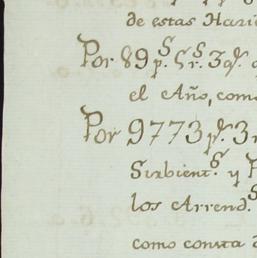 de estas Hari
Por 89 p.s 5 r.s 3 q.s
el Año, com
Por 9773 p.s 3
Sirbient.s y
los Arrend.s
como consta